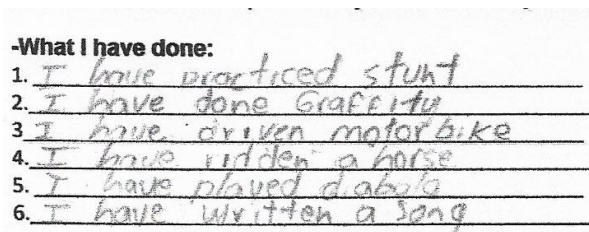 -What I have done:
1. I have practiced stunt
2. I have done Graffity
3 I have driven motorbike
4. I have ridden a horse
5. I have played diabala
6. I have written a song